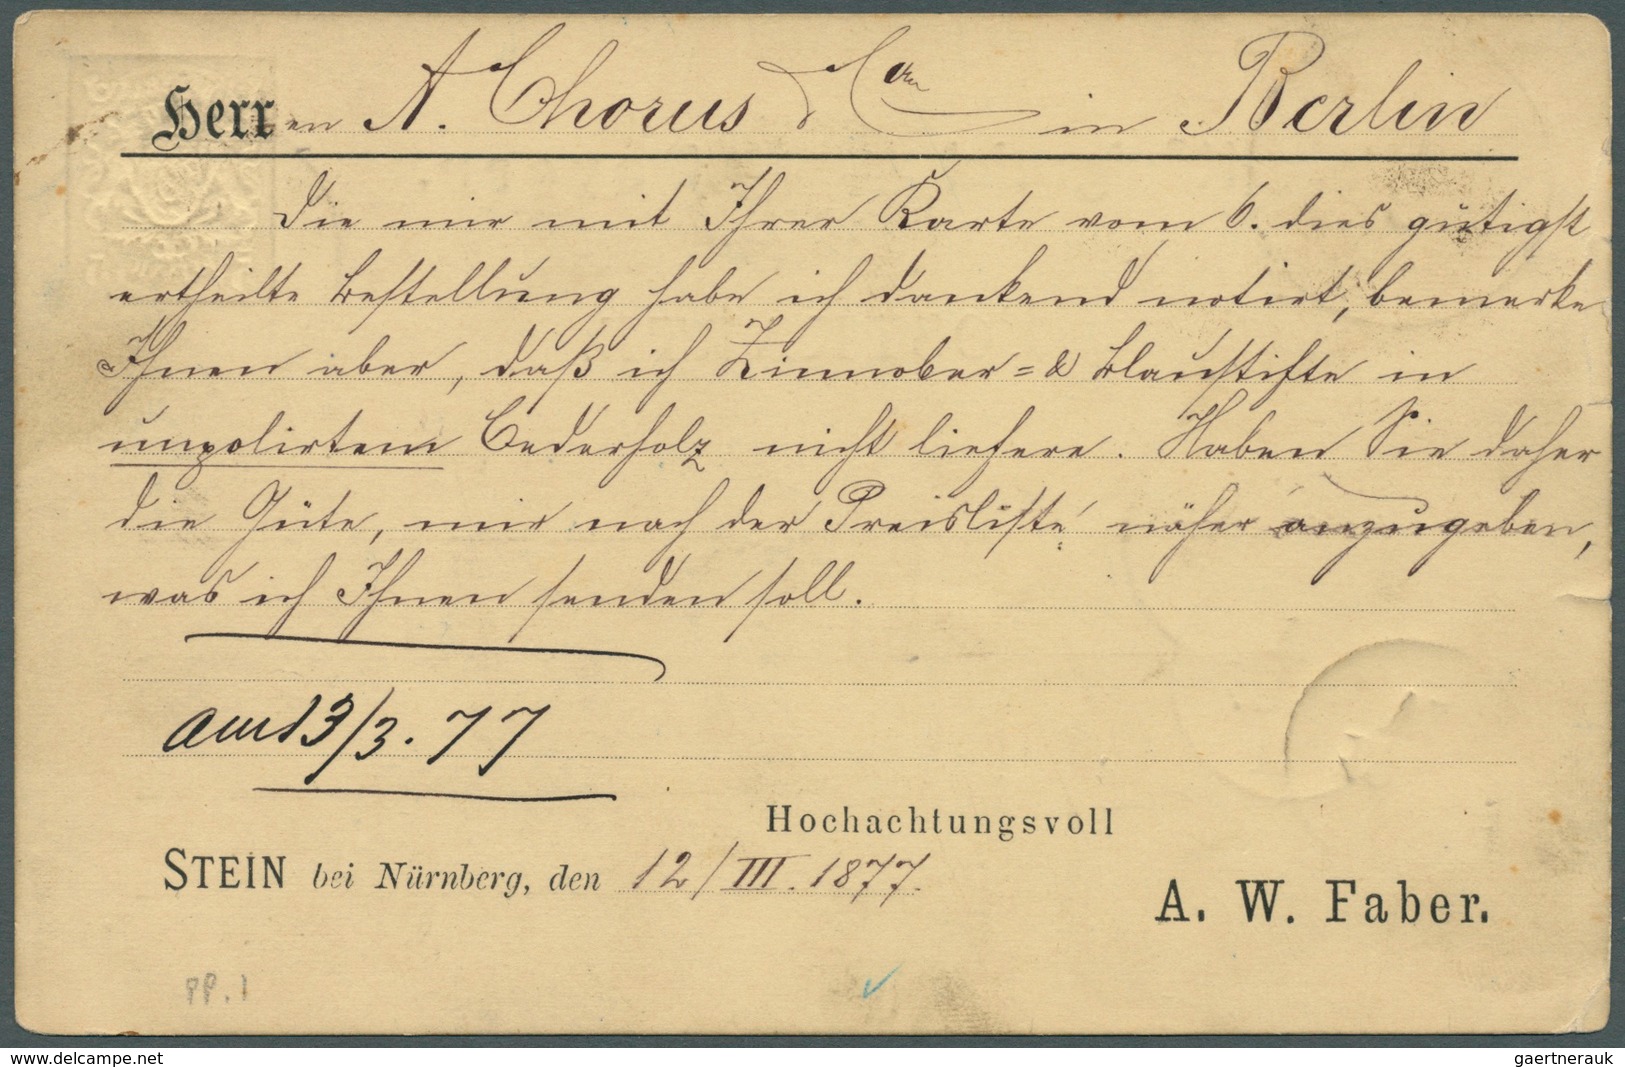 Herren A. Chorus & Co in Berlin
Die mir mit Ihrer Karte vom 6. dies gütigst
ertheilte Bestellung habe ich dankend notirt, bemerke
Ihnen aber, daß ich Zinnober= & Blaustifte in
unpolirtem Cederholz nicht liefere. Haben Sie daher
die Güte, mir nach der Preisliste näher anzugeben,
was ich Ihnen senden soll.
13/3. 77
Hochachtungsvoll
STEIN bei Nürnberg, den 12/III. 1877.
A. W. Faber.
PP. 1
www.delcampe.net
gaertnerauk